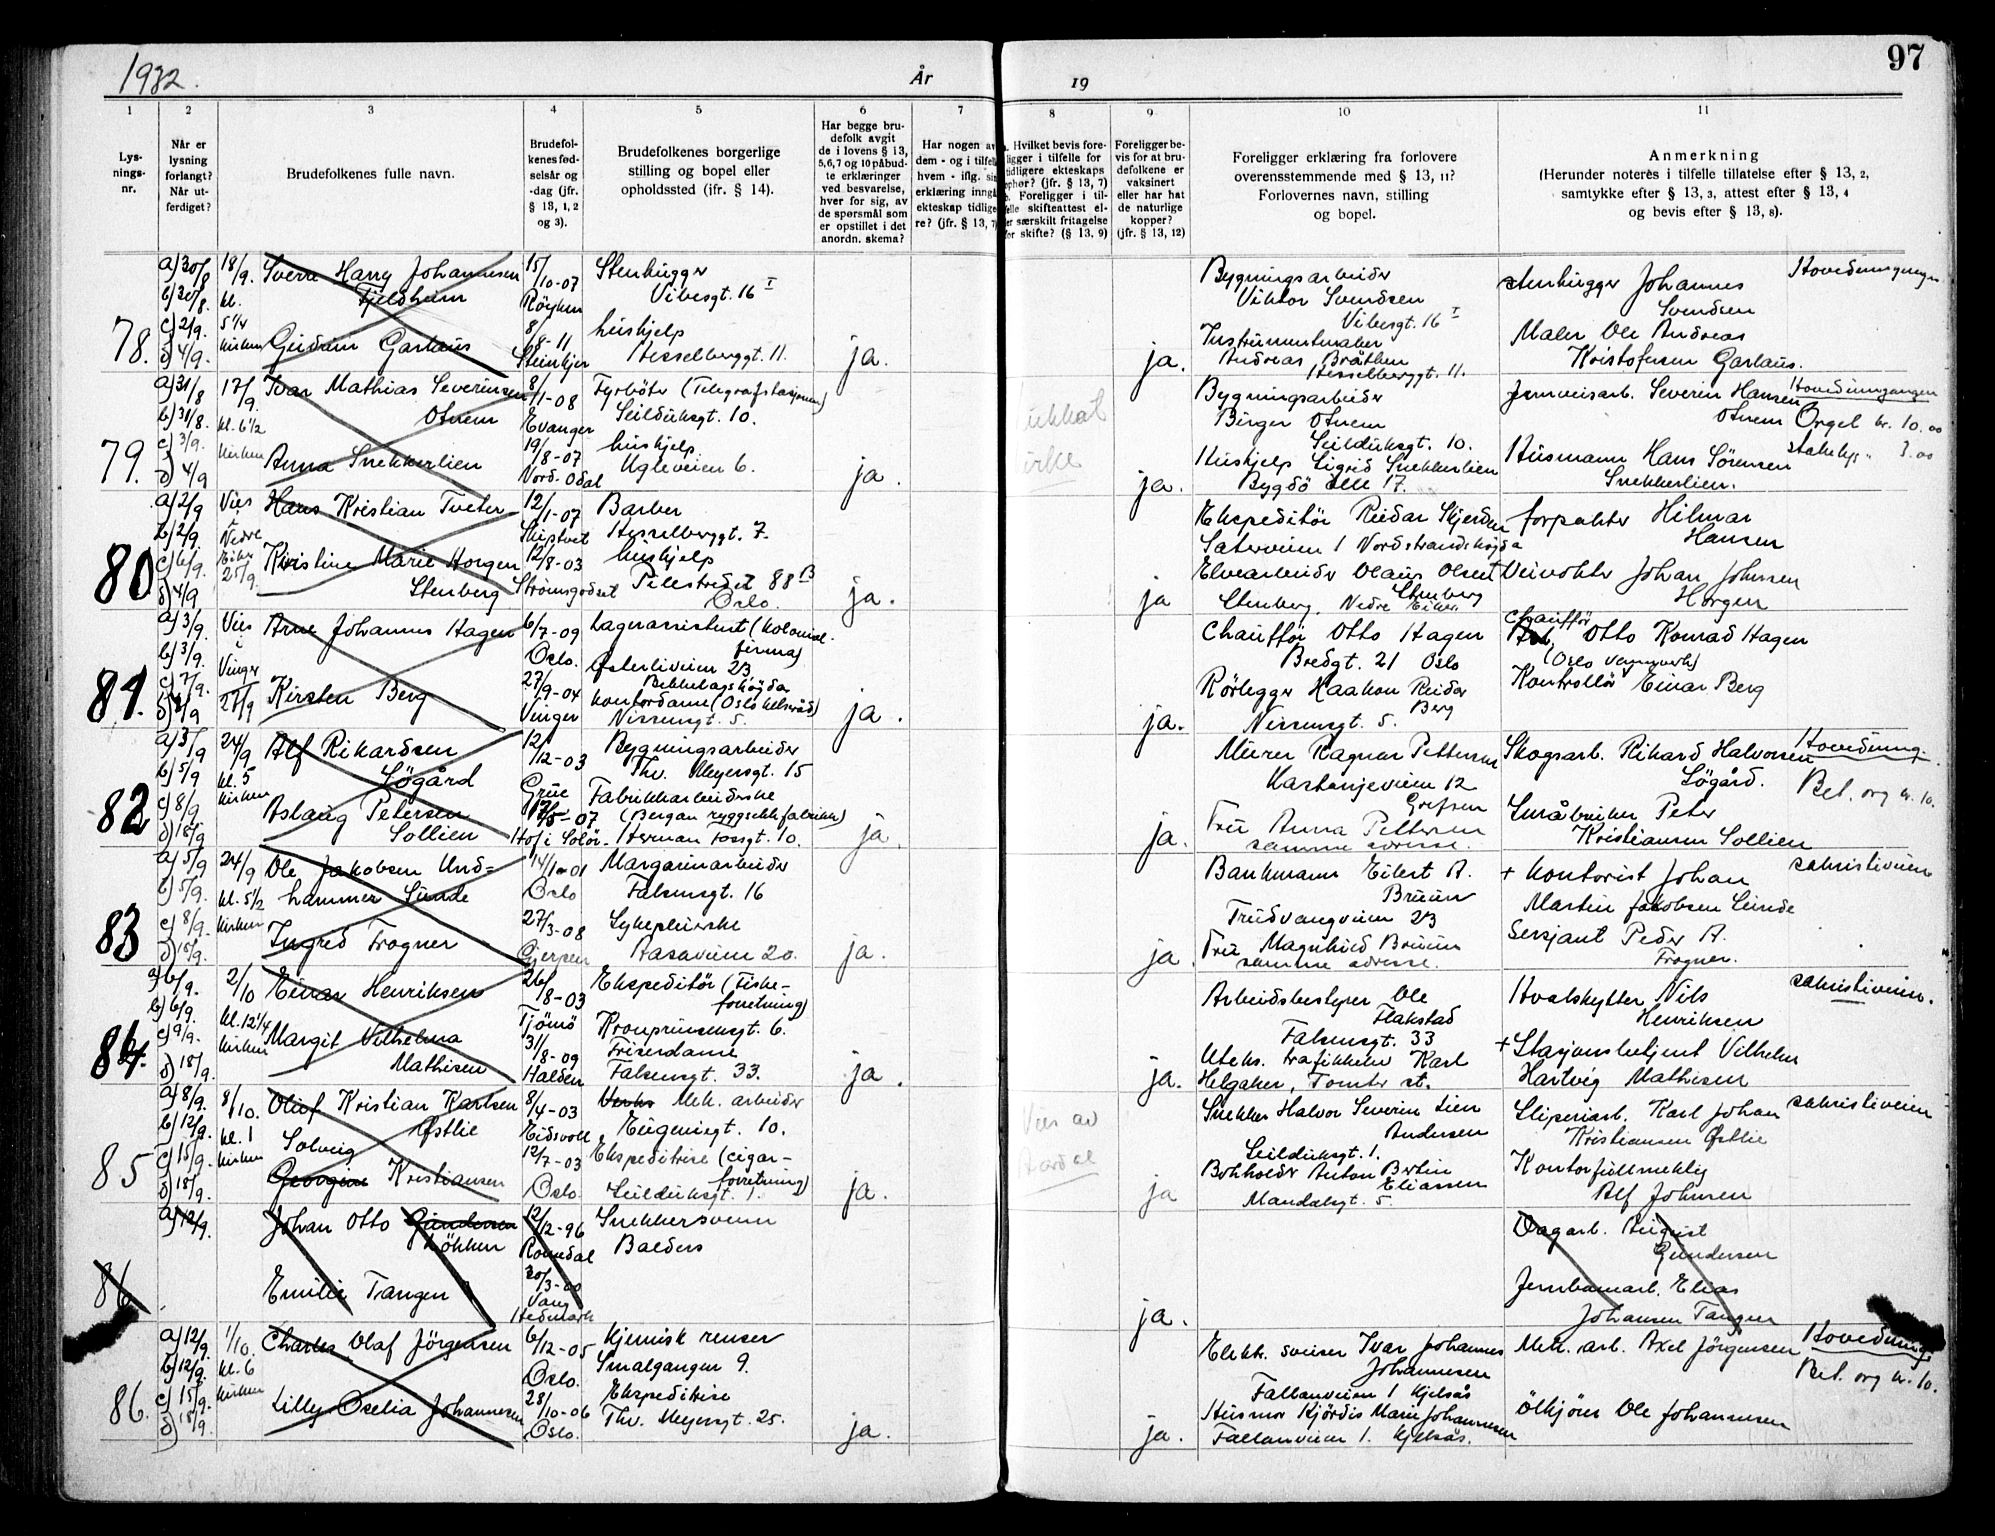 1932.
År
19
97
1
2
3
4
5
6
7
8
9
10
11
Lys-
nings-
nr.
Når er
lysning
forlangt?
Når ut-
ferdiget?
Brudefolkenes fulle navn.
Brudefol-
kenes fød-
selsår og
-dag (jfr.
§ 13, 1, 2
og 3).
Brudefolkenes borgerlige
stilling og bopel eller
opholdssted (jfr. § 14).
Har begge bru-
defolk avgit
de i lovens § 13,
5,6,7 og 10 påbud-
te erklæringer
ved besvarelse,
hver for sig, av
de spørsmål som
er opstillet i det
anordn. skema?
Har nogen av
dem - og i tilfelle
hvem - iflg. sin
erklæring inngå
ekteskap tidlige
re? (jfr. § 13, 7)
Hvilket bevis fore-
ligger i tilfelle for
tidligere ekteskaps
ophør? (jfr. § 13, 7)
Foreligger i til-
felle skifteattest el-
er særskilt fritagelse
for skifte? (§ 13, 9)
Foreligger be-
vis for at bru-
defolkene er
vaksinert
eller har hat
de naturlige
kopper?
(jfr. § 13, 12)
Foreligger erklæring fra forlovere
overensstemmende med § 13, 11?
Forlovernes navn, stilling
og bopel.
Anmerkning
(Herunder noteres i tilfelle tillatelse efter § 13, 2,
samtykke efter § 13, 3, attest efter § 13, 4
og bevis efter § 13, 8).
78.
a) 30/8
b) 30/8.
c) 2/9.
d) 4/9.
18/9.
kl.
5 1/4
kirken
Sverre Harry Johannesen
Fjeldheim
Gudrun Garhaus
15/10-07
Röyken
8/8-11
Steinkjer
Stenhugger
Vibesgt. 16 I
hushjelp
Hesselberggt. 11.
ja.
ja.
Bygningsarbeider
Viktor Svendsen
Vibesgt. 16 I
Instrumentmaker
Andreas Bråthen
Hesselberggt. 11.
stenhugger Johannes
Svendsen
Maler Ole Andreas
Kristofersen Garhaus.
Hovedinngangen
79.
a) 31/8
b) 31/8.
c) 3/9.
d) 4/9
17/9.
kl. 6 1/2
kirken
Ivar Mathias Severinsen
Otnem
Anna Snekkerlien
8/1-08
Evanger
19/8-07
Nord-Odal
Fyrböter (Telegrafstasjonen)
Seilduksgt. 10.
hushjelp
Ugleveien 6.
ja.
ja.
Bygningsarbeider
Birger Otnem
Seilduksgt. 10.
Hushjelp Sigrid Snekkerlien
Bygdö alle 17.
Jernveisarb. Severin Hansen
Otnem
Husmann Hans Sörensen
Snekkerlien.
Hovedinngangen
Orgel kr. 10.00
Stakelys " 3.00
80
a) 2/9
b) 2/9.
c) 6/9.
d) 4/9
Vies
i
Nedre
Eiker
25/9.
Hans Kristian Tveter
Kristine Marie Horgen
Stenberg
12/1-07
Skiptvet
12/8-03
Strömsgodset
Barber
Hesselberggt. 7.
hushjelp
Pilestredet 88 B
Oslo.
ja.
ja
Ekspeditör Reidar Skjerden
Saterveien 1 Nordstrandshögda
Elvearbeider Olaus Olsen
Stenberg
Stenberg, Nedre Eiker.
forpakter Hilmar
Hansen
Veivokter Johan Johnsen
Horgen
81.
a) 3/9.
b) 3/9.
c) 7/9.
Vies
i
Vinger
Arne Johannes Hagen
Kirsten Berg
6/7-09
Oslo.
27/9-04
Vinger
Lagerassistent (kolonial-
firma)
Österliveien 23
Bekkelagshögda
kontordame (Oslo helseråd)
Nissensgt. 5.
ja.
ja.
Chaufför Otto Hagen
Bredgt. 21 Oslo
Rörlegger Haakon Reidar
Berg
Nissensgt. 5.
Chaufför
Otto Konrad Hagen
Kontrollör Einar Berg
82
a) 3/9
b) 5/9
c) 8/9
d) 18/9
24/9
kl. 5
kirken
Alf Rikardsen
Lögård
Aslaug Petersen
Sollien
12/12-03
Grue
Hof i Solör
Bygningsarbeider
Thv. Meyersgt. 15
Fabrikkarbeiderske
(Bergan ryggsekkfabrikk)
Herman Fossgt. 10.
ja.
ja.
Murer Ragnar Pettersen
Kastanjeveien 12
Grefsen
Fru Anna Pettersen
samme adresse.
Skogsarb. Rikard Halvorsen
Lögård.
Småbruker Peter
Kristiansen Sollien
Hovedinng.
Bet. org kr. 10.
83
a) 5/9
b) 5/9.
c) 8/9.
d) 18/9.
24/9
kl. 5 1/2
kirken
Ole Jakobsen Und-
hammer Sunde
Ingrid Frogner
14/1-01
Oslo
27/3-08
Gjerpen
Margarinarbeider
Falsensgt. 16
Sykepleierske
Aasaveien 20.
ja.
ja
Bankmann Eilert A.
Bruun
Trudvangveien 23
Fru Magnhild Bruun
samme adresse.
+ Kontorist Johan
Martin Jakobsen Sunde
Sersjant Peder A.
Frogner.
sakristiveien
84.
a) 6/9.
b) 6/9.
c) 9/9.
d) 18/9.
2/10
kl. 12 1/4
kirken
Einar Henriksen
Margit Vilhelma
Mathisen
26/8-03
Tjömö
31/8-09
Halden
Ekspeditör (Fiske-
forretning)
Kronprinsensgt. 6.
Friserdame
Falsensgt. 33.
ja.
ja.
Arbeidsbestyrer Ole
Flakstad
Falsensgt. 33
Uteks. trafikkelev Karl
Helgaker, Tomter st.
Hvalskytter Nils
Henriksen
+ Stasjonsbetjent Vilhelm
Hartvig Mathisen
sakristiveien.
85
a) 8/9.
b) 12/9.
c) 15/9.
d) 18/9.
8/10.
kl. 1
kirken
Oluf Kristian Karlsen
Östlie
Solveig
Georgine Kristiansen
8/4-03
Eidsvoll
12/7-03
Oslo.
Verks Mek. arbeider
Eugeniegt. 10.
Ekspeditrise (cigar-
forretning)
Seilduksgt. 1.
ja.
Vies av
ja
Snekker Halvor Severin Lien
Andersen
Seilduksgt. 1.
Bokholder Anton Bertin
Eliassen
Mandalsgt. 5.
Sliperiarb. Karl Johan
Kristiansen Östlie
Kontorfullmektig
Alf Johnsen
sakristiveien
86
a) 12/9.
Johan Otto Gundersen
Lökken
Emilie Tangen
12/12-96
Romedal
30/3-00
Vang
Hedmark
Snekkersvenn
Balders
ja.
Dagarb. August
Gundersen
Jernbanearb. Elias
Johansen Tangen
86.
a) 12/9.
b) 12/9.
c) 15/9.
d) 18/9.
1/10.
kl. 6
kirken
Charles Olaf Jörgensen
Lilly Oselia Johannesen
6/12-05
Oslo.
28/10-06
Oslo.
kjemisk renser
Smalgangen 9.
Ekspeditrise
Thv. Meyersgt. 25.
ja.
ja.
Elektr. sveiser Ivar Johannes
Johannesen
Fallanveien 1 Kjelsås
Husmor Kjördis Marie Johannesen
Fallanveien 1. Kjelsås.
Mek. arb. Axel Jörgensen
Ölkjörer Ole Johannesen
Hovedinng.
Bet. org kr. 10.